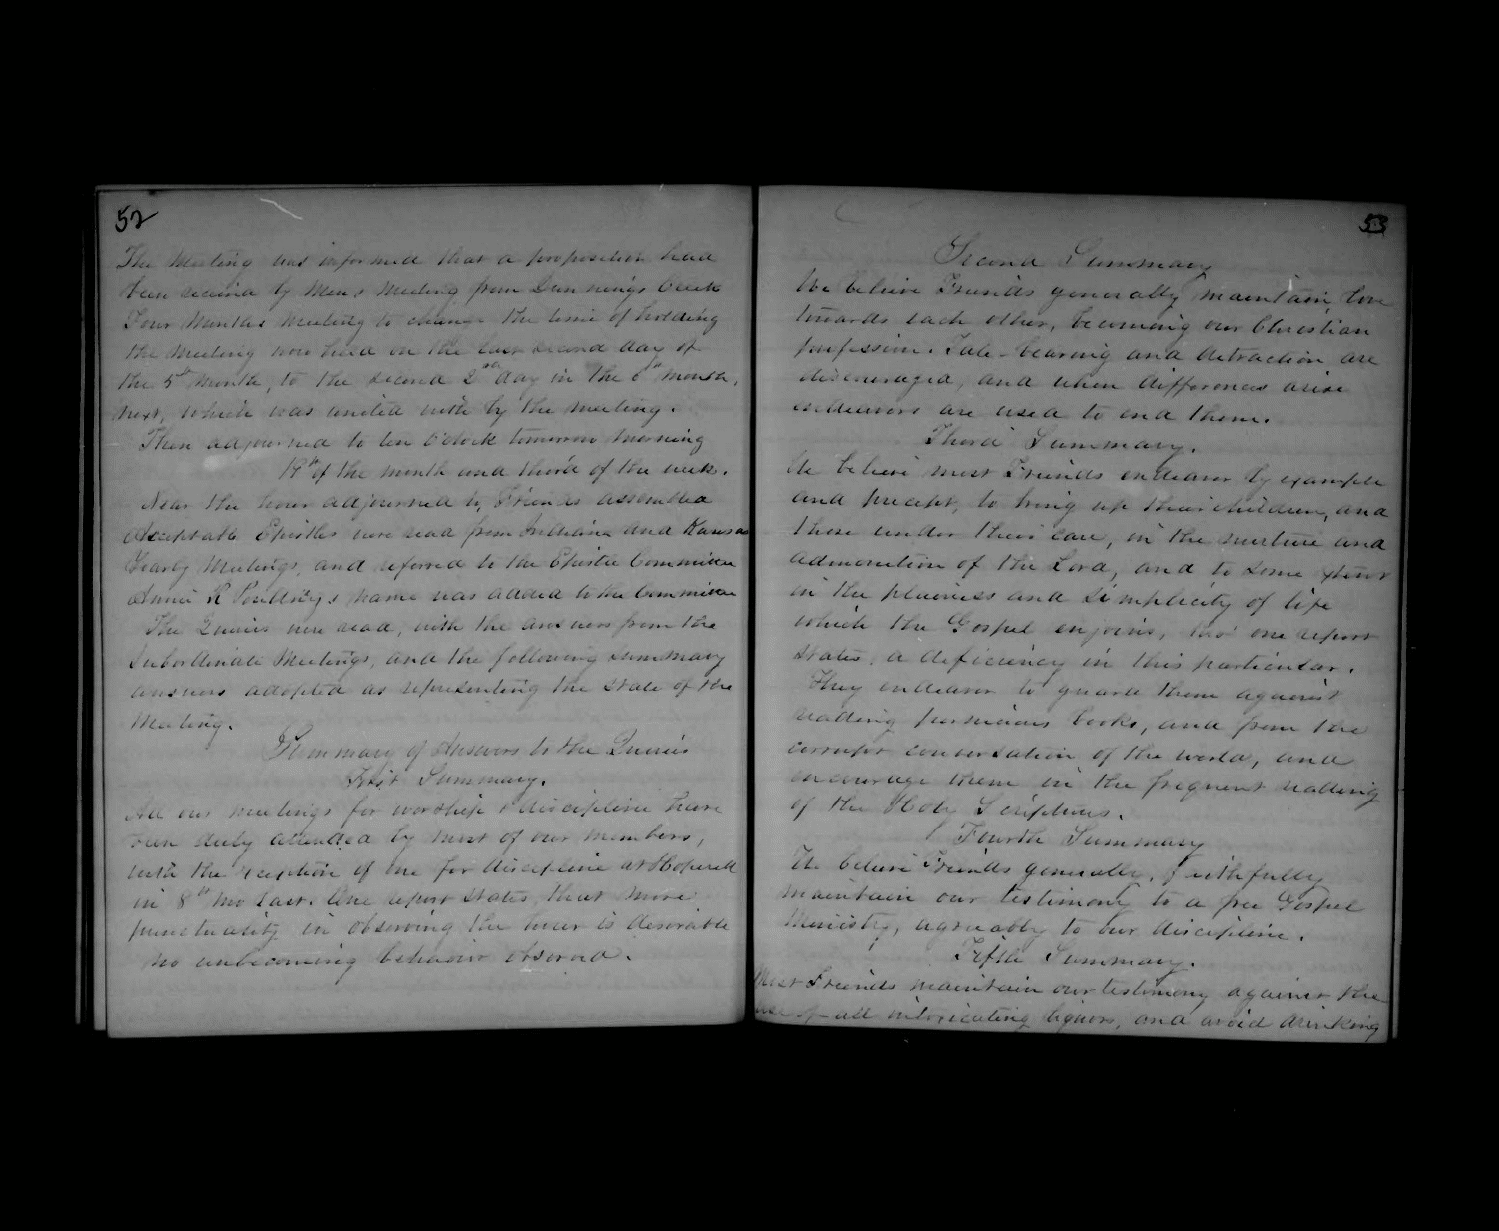 52
The Meeting was informed that a proposition had
been received by Men's Meeting from Dunnings Creek
Four Months Meeting to change the time of holding
the Meeting now held on the last second day of
the 5th Month, to the second 2nd day in the 6th month,
next, which was united with by the meeting.
Then adjourned to ten o'clock tomorrow morning
19th of the month and third of the week.
Near the hour adjourned to, Friends assembled
Acceptable Epistles were read from Indiana and Kansas
Yearly Meetings, and referred to the Epistle Committee
Annie R name was added to the Committee
The Queries were read, with the answers from the
Subordinate Meetings, and the following Summary
answers adopted as representing the state of the
Meeting.
Summary of Answers to the Queries
First Summary.
All our meetings for worship & discipline have
been duly attended by most of our members,
with the exception of one for discipline at Hopewell
in 8th mo last. One report states, that more
punctuality in observing the hour is desirable
no unbecoming behavior observed.
53
Second Summary
We believe Friends generally maintain love
towards each other, becoming our Christian
profession. Tale-bearing and detraction are
discouraged, and when differences arise
endeavors are used to end them.
Third Summary.
We believe most Friends endeavor by example
and precept, to bring up their children, and
those under their care, in the nurture and
admonition of the Lord, and to some extent
in the plainness and simplicity of life
which the Gospel enjoins, tho' one report
states, a deficiency in this particular.
They endeavor to guard them against
reading pernicious books, and from the
corrupt conversation of the world, and
encourage them in the frequent reading
of the Holy Scriptures.
Fourth Summary
We believe Friends generally, faithfully
maintain our testimony to a free Gospel
Ministry, agreeably to our discipline.
Fifth Summary.
Most Friends maintain our testimony against the
use of all intoxicating liquors, and avoid drinking